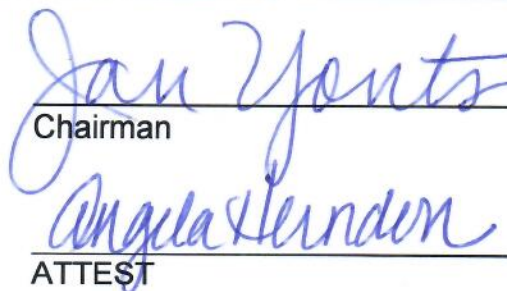 Jan Yonts
Chairman
Angela Herndon
ATTEST